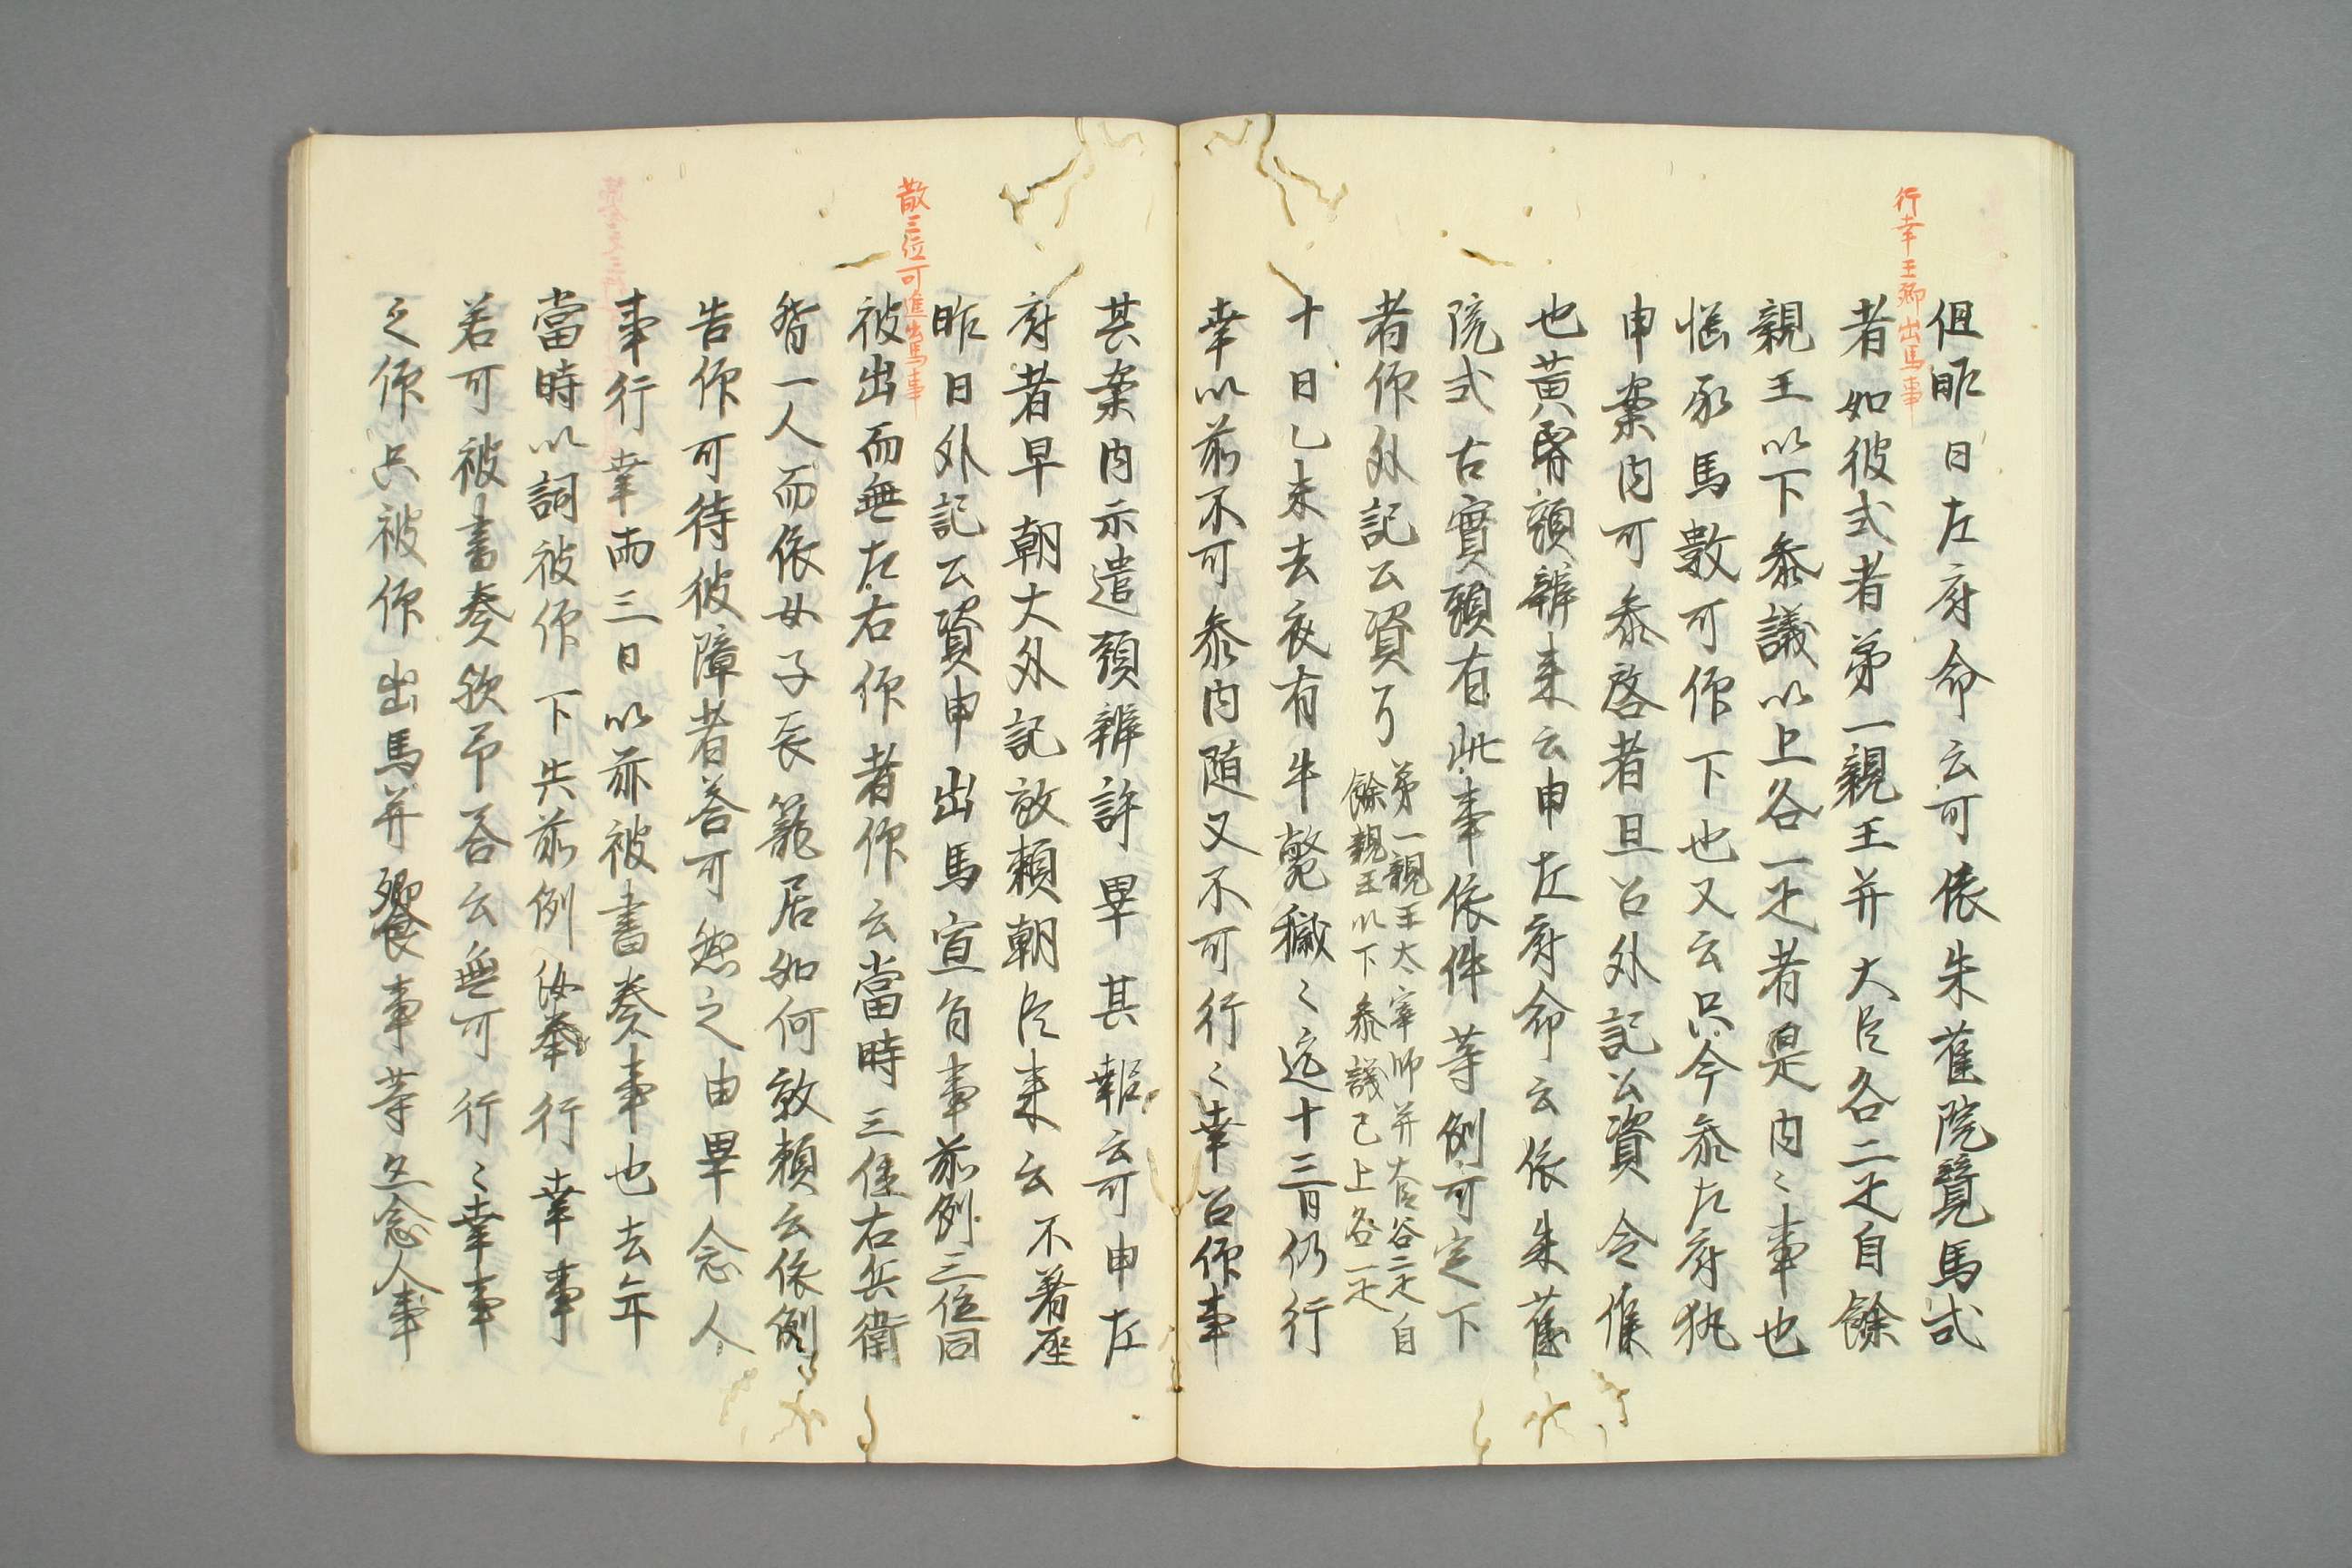 行幸王卿出馬事
但昨日左府命云可依朱雀院覽馬式
者如彼式者第一親王并大臣各二疋自餘
親王以下参議以上各一疋者是内々事也
慥承馬數可仰下也又云只今参左府執
申案内可参啓者且召外記公資令候
也黄昏頭辨来云申左府命云依朱雀
院式右實頭有此事依件等例可定下
者仰外記公資了第一親王大宰帥并大臣各二疋自
餘親王以下参議已上各一疋
十日乙未去夜有牛斃穢々迄十三日仍行
幸以前不可参内随又不可行々幸召仰事
其案内示遣頭辨許畢其報云可申左
府者早朝大外記敦頼朝臣来云不着座
昨日外記公資申出馬宣旨事前例三位同
散三位可進出馬事
被出而無左右仰者仰云當時三位右兵衛
督一人而依女子喪籠居如何敦頼云依例
告仰可待彼障者答可然之由畢念人
事行幸両三日以前被書奏事也去年
當時以詞被仰下失前例汝奉行幸事
若可被書奏歟予答云無可行々幸事
之仰只被仰出馬并饗事等也念人事